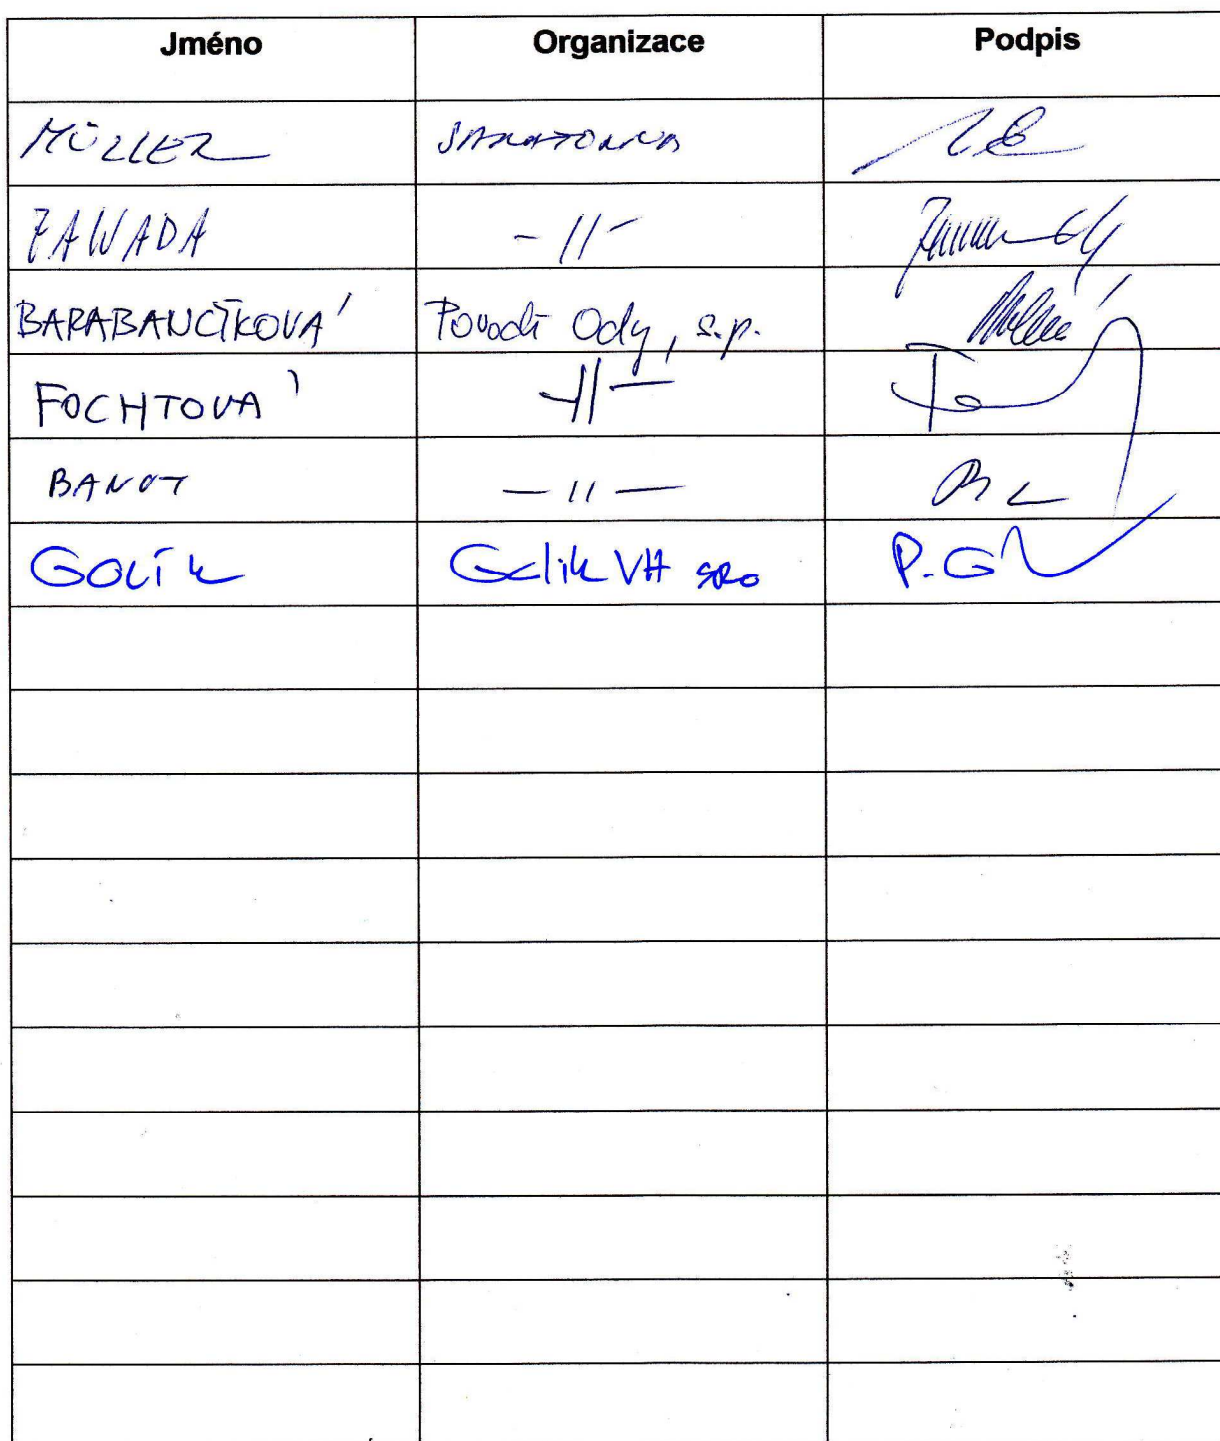 Jméno Organizace Podpis
MÜLLER
ZAWADA -11-
BARABANCÍKOVÁ Povodí Odry, s.p.
FOCHTOVÁ -11-
BANOT -11-
GOLÍK Golik VH SRO P.G